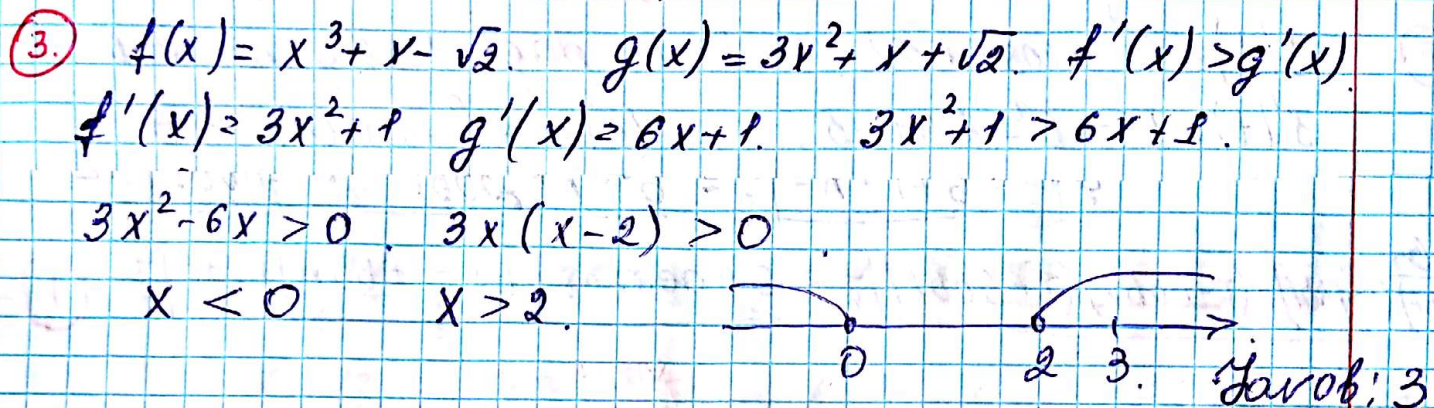 3. f(x) = x³ + x - √2. g(x) = 3x² + x + √2. f'(x) > g'(x).
f'(x) = 3x² + 1 g'(x) = 6x + 1. 3x² + 1 > 6x + 1.
3x² - 6x > 0. 3x(x - 2) > 0.
x < 0 x > 2.
0 2 3.
Javob: 3